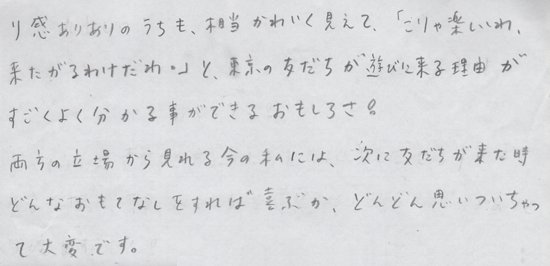 り感ありありのうちも、相当かわいく見えて、「こりゃ楽しいわ、
来たがるわけだわ。」と、東京の友だちが遊びに来る理由が
すごくよく分かる事ができるおもしろさ!
両方の立場から見れる今の私には、次に友だちが来た時
どんなおもてなしをすれば喜ぶか、どんどん思いついちゃっ
て大変です。